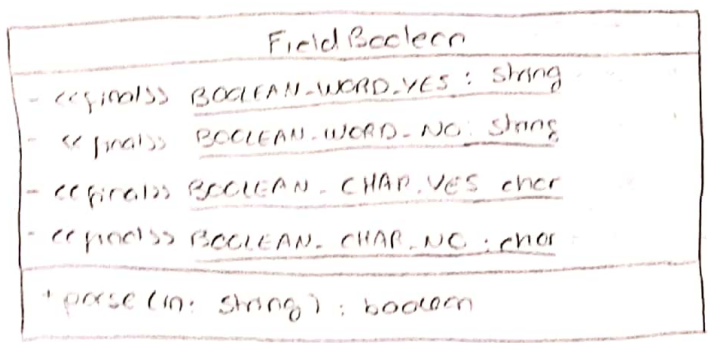 FieldBoolean
- <<final>> BOOLEAN_WORD_YES : string
- <<final>> BOOLEAN_WORD_NO : string
- <<final>> BOOLEAN_CHAR_YES char
- <<final>> BOOLEAN_CHAR_NO : char
+ parse (in: string) : boolean